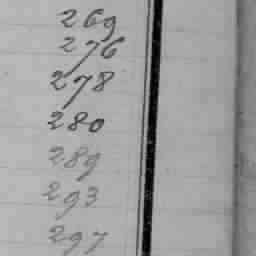 269
276
278
280
289
293
297